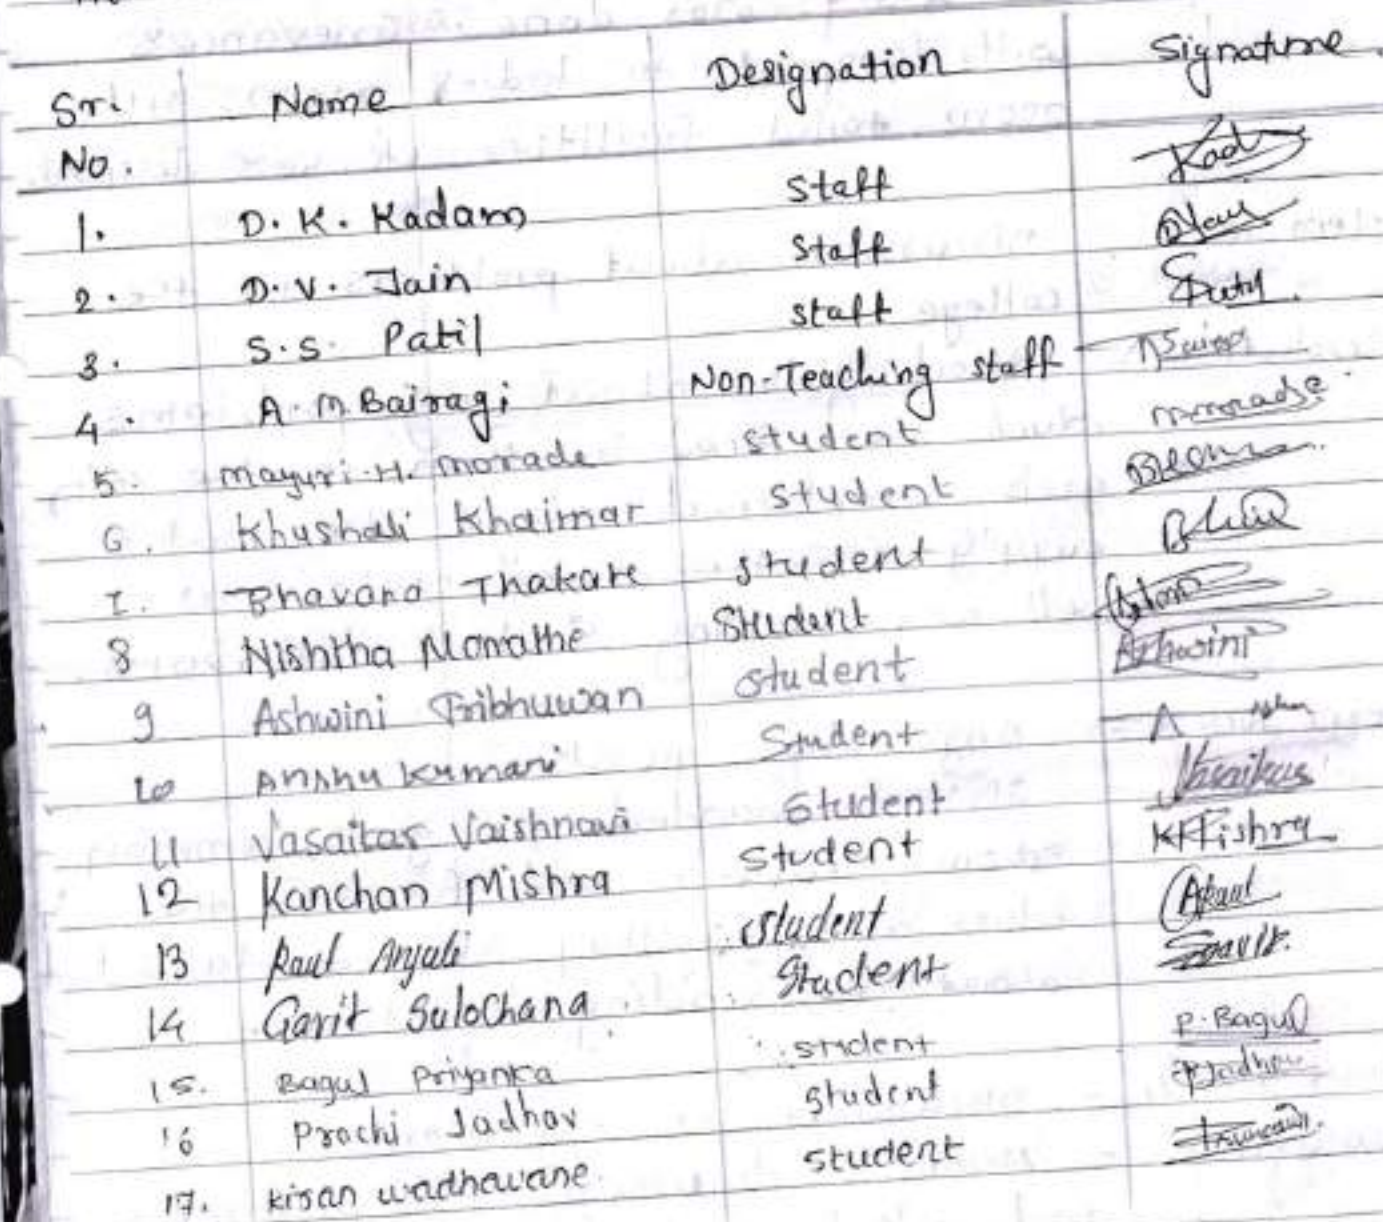 Sr. Name Designation Signature
No.
1. D. K. Kadam Staff
2. D. V. Jain Staff
3. S.S. Patil Staff
4. A. M Bairagi Non-Teaching Staff
5. Mayuri H. Morade Student mmorade
6. Khushali Khairnar Student
7. Bhavana Thakare Student
8 Nishtha Student
9 Ashwini Tribhuwan Student Ashwini
10 Anshu Kumari Student
11 Vasaikar Vaishnavi Student Vasaikar
12 Kanchan Mishra Student KMishra
13 Raul Anjali Student ARaul
14 Gavit SuloChana Student
15. Bagul Priyanka student P. Bagul
16 Prachi Jadhav student PJadhav
17. Kisan wadhawane student